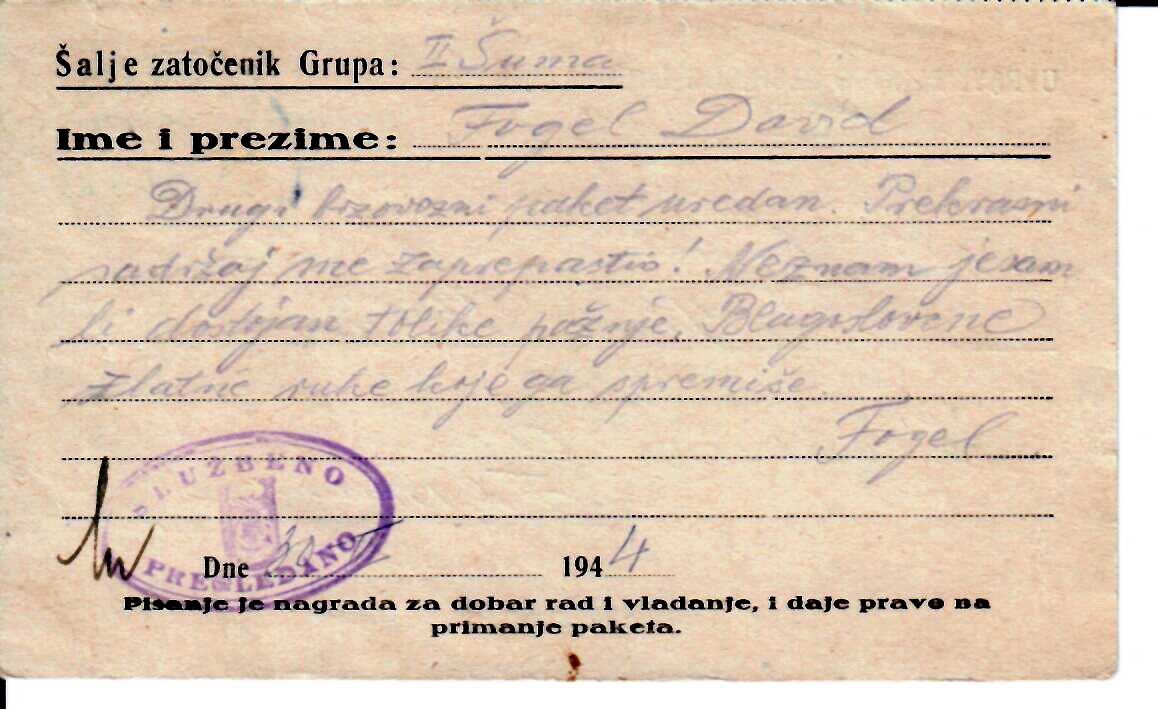 Šalje zatočenik Grupa: II Šuma
Ime i prezime: Fogel David
Drugi brzovozni paket uredan. Prekrasni
sadržaj me zaprepastio! Neznam jesam
li dostojan tolike pažnje. Blagoslovene
zlatne ruke koje ga spremiše.
Fogel
SLUŽBENO
PREGLEDANO
Dne 1944
Pisanje je nagrada za dobar rad i vladanje, i daje pravo na
primanje paketa.